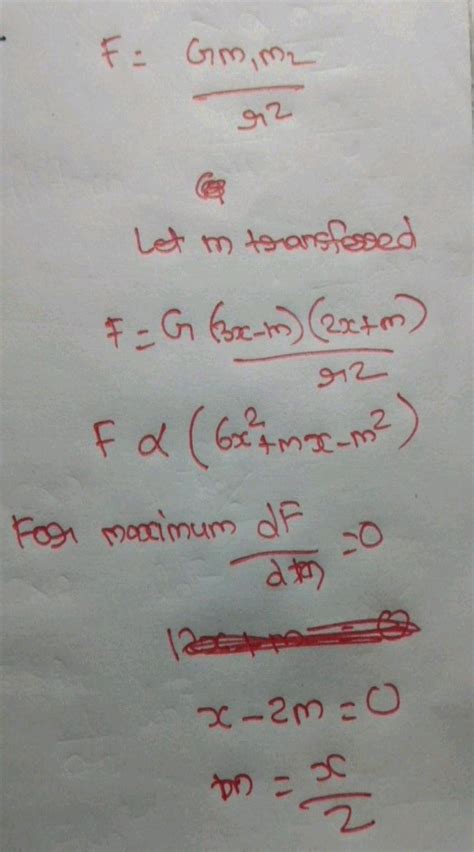 F = Gm₁m₂
r²
Let m transfered
F = G (3x-m)(2x+m)
r²
F α (6x²+mx-m²)
For maximum dF/dm = 0
x - 2m = 0
m = x/2